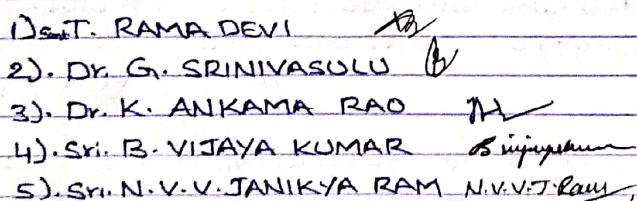 1) Smt T. RAMA DEVI
2). Dr. G. SRINIVASULU
3). Dr. K. ANKAMA RAO
4). Sri. B. VIJAYA KUMAR B vijayakumar
5). Sri. N.V.V. JANIKYA RAM N.V.V.J. Ram